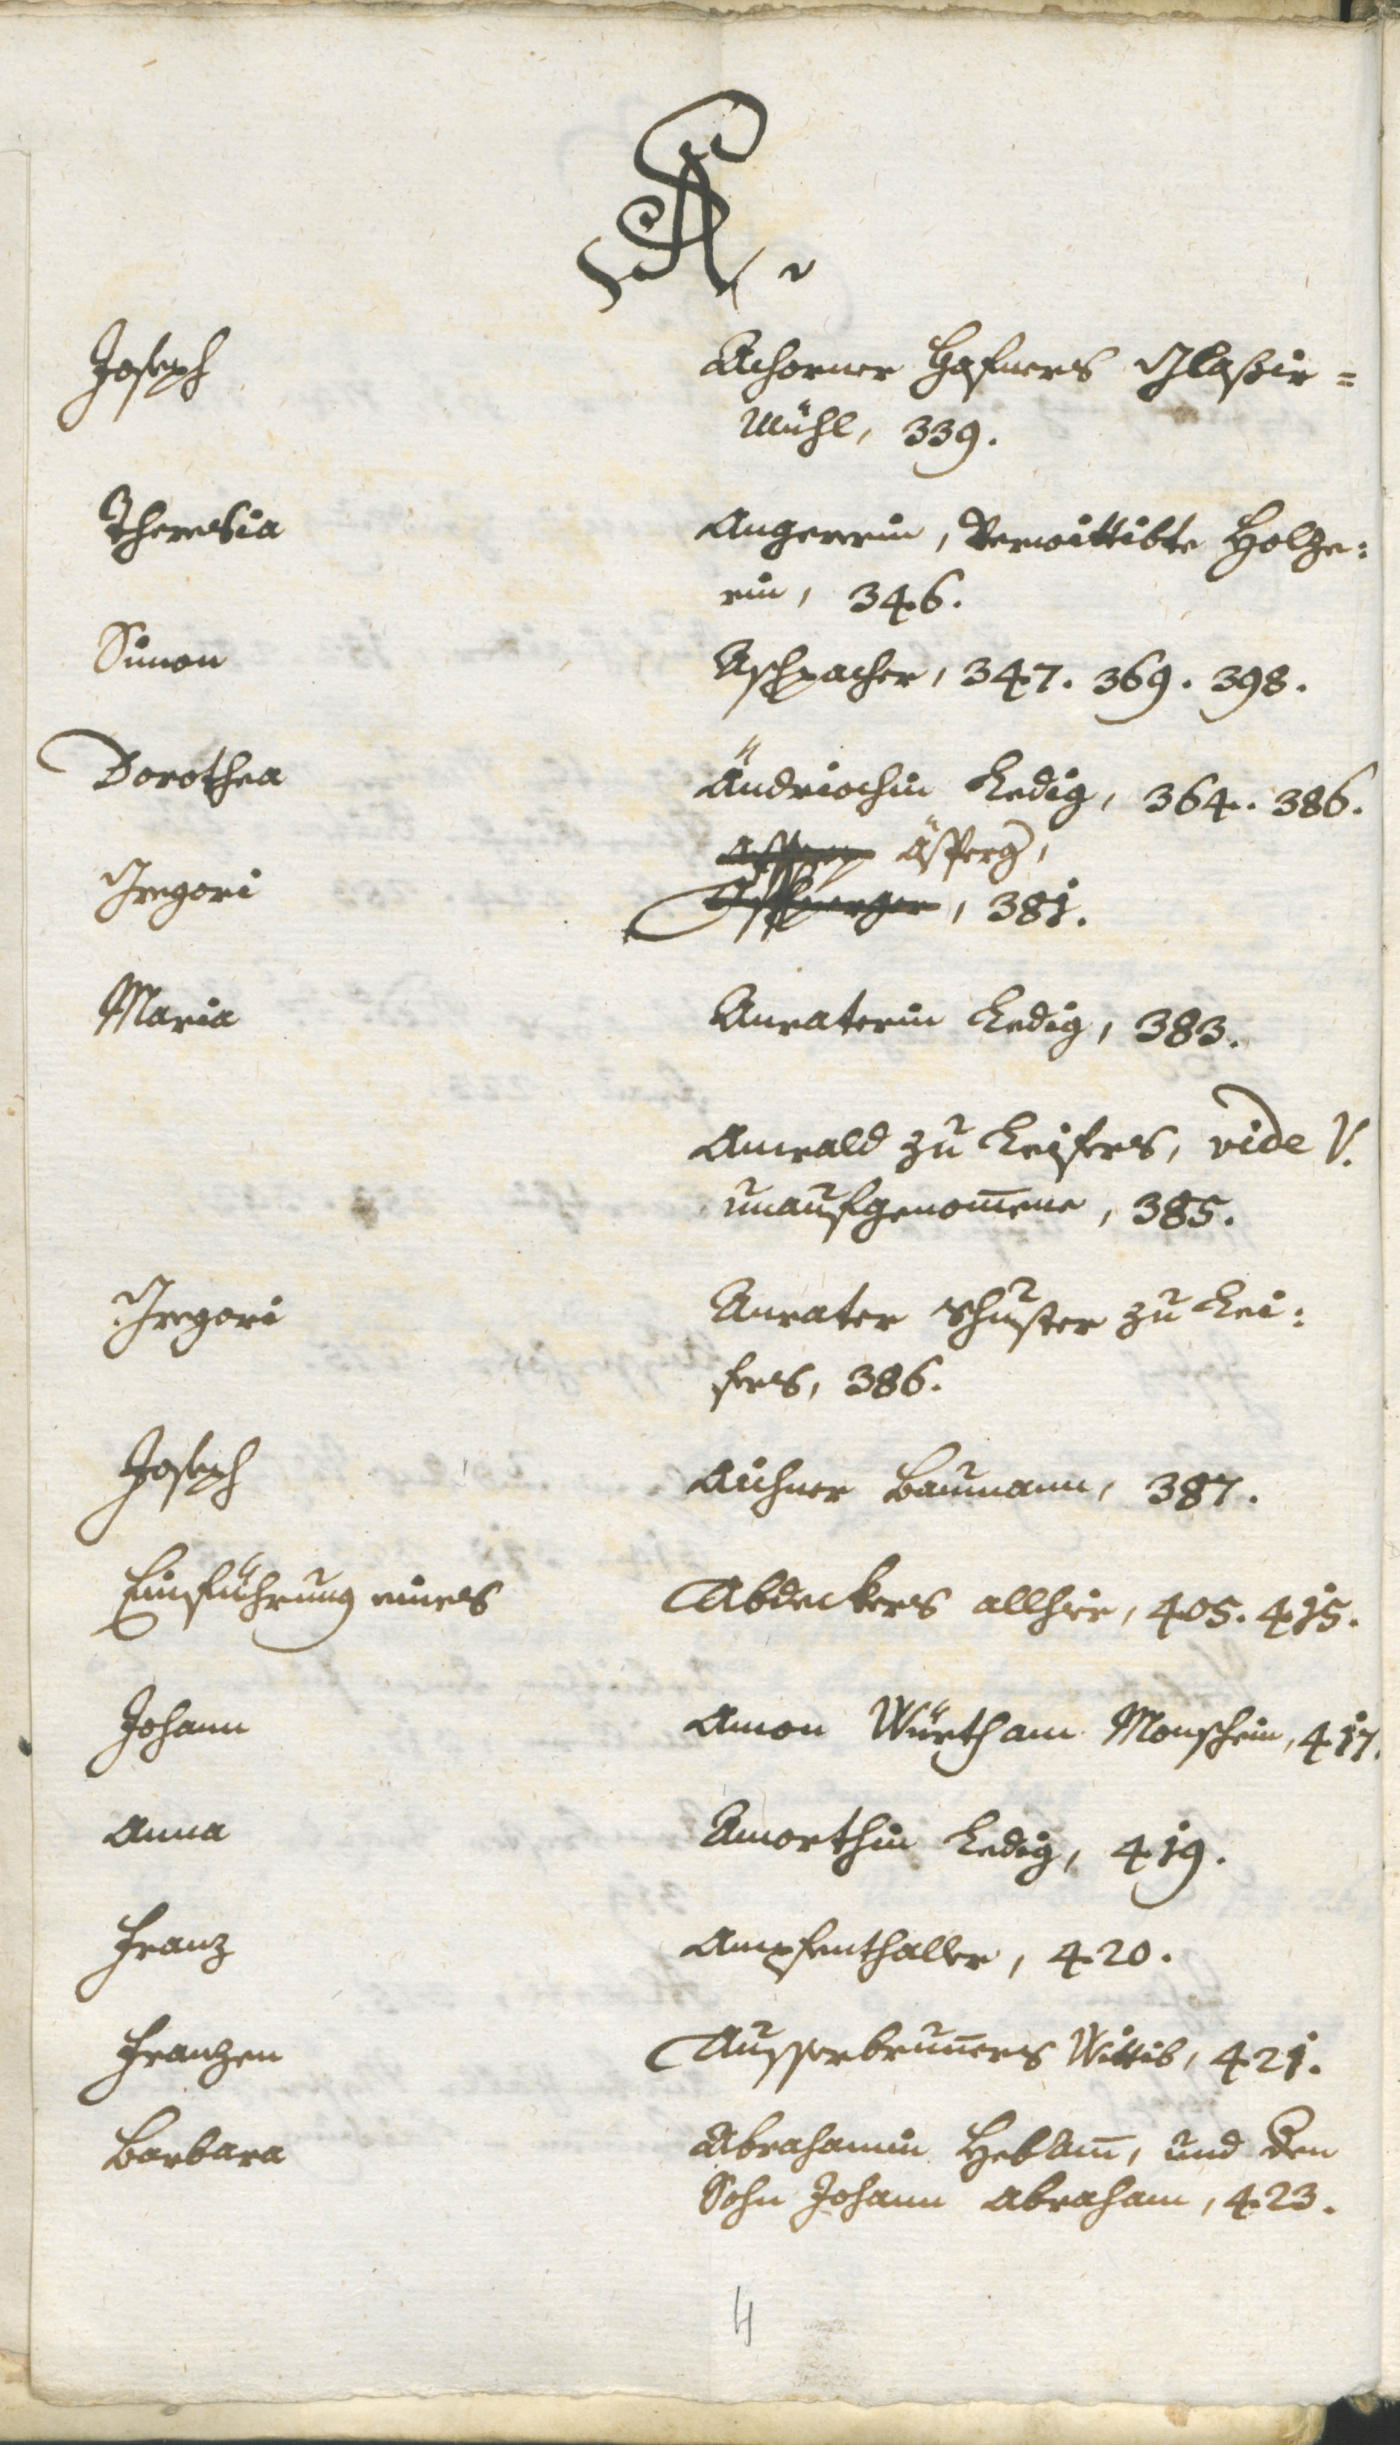 A.
Joseph Achorner Hafners Glasir=
Mühl, 339.
Theresia Angererin, Verwittibte Holze:
rin, 346.
Simon Aschpacher, 347. 369. 398.
Dorothea Ändriochin Ledig, 364. 386.
Äsperg,
Gregori , 381.
Maria Anraterin Ledig, 383.
Anwald zu Leifers, vide V.
unaufgenom̄ene, 385.
Gregori Anrater Schuster zu Lei:
fers, 386.
Joseph Aichner Baumann, 387.
Einführung eines Abdeckers allhier, 405. 415.
Johann Amon Würth am Monschein, 417.
Anna Amorthin Ledig, 419.
Franz Ampfenthaller, 420.
Franzen Ausserbrun̄ers Wittib, 421.
Barbara Abrahamin Hebam̄, und den
Sohn Johann Abraham, 423.
4